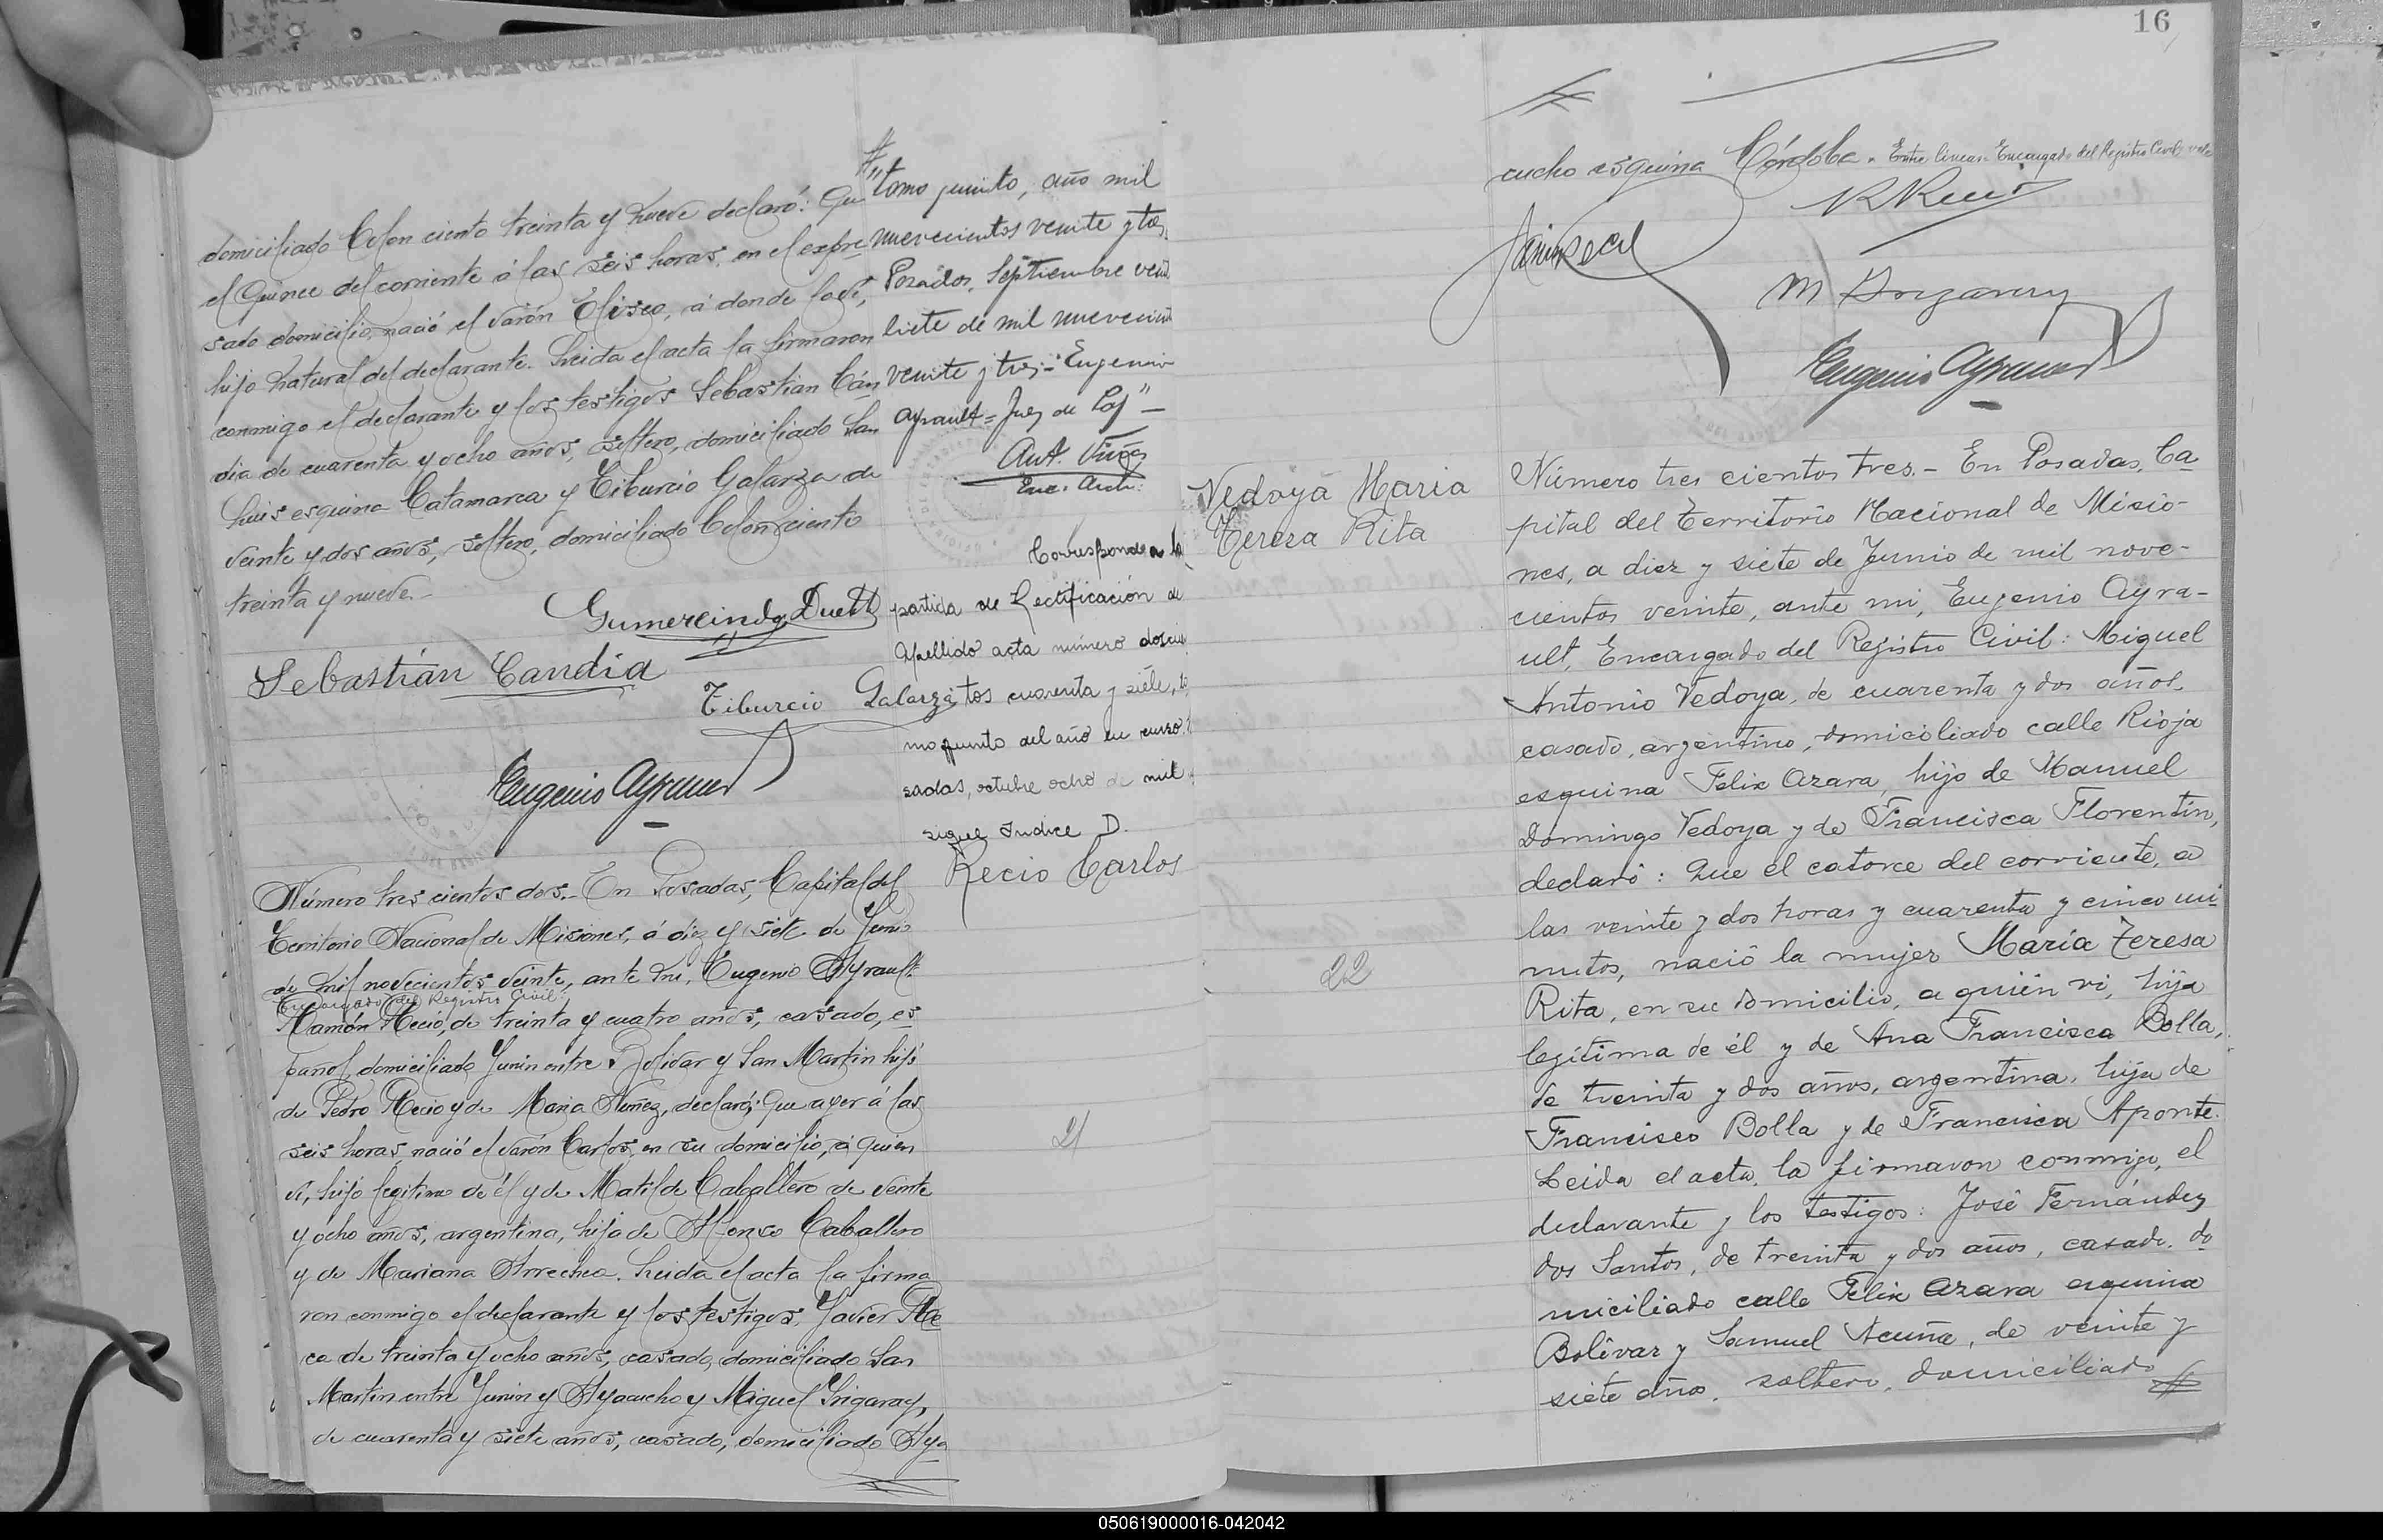 domiciliado Colon ciento treinta y nueve declaró: Que
el Quince del corriente á las seis horas, en el expre
sado domicilio, nació el varón Eliseo, á donde lo ví,
hijo natural del declarante. Leida el acta la firmaron
conmigo el declarante y los testigos Sebastián Can
dia de cuarenta y ocho años, soltero, domiciliado San
Luis esquina Catamarca y Tiburcio Galarza de
veinte y dos años, soltero, domiciliado Colon ciento
treinta y nueve.-
Gumercindo Duett
Sebastián Candia
Tiburcio Galarza
Eugenio Ayrault
"tomo quinto, año mil
novecientos veinte y tres.
Posadas, Septiembre vein
siete de mil novecient
veinte y tres = Eugenio
Ayrault = Juez de Paz" -
Ant.
Enc. Arch.
Corresponde a la
partida de Rectificación de
Apellido acta número doscien
tos cuarenta y siete, to
mo quinto del año en curso.
sadas, octubre ocho de mil
sigue Indice D.
Recio Carlos
Número tres cientos dos.- En Posadas, Capital del
Territorio Nacional de Misiones, á diez y siete de Junio
de mil novecientos veinte, ante mi, Eugenio Ayrault
Encargado del Registro Civil:
Ramón Recio, de treinta y cuatro años, casado, es
pañol, domiciliado Junin entre Bolivar y San Martin hijo
de Pedro Recio y de Maria Nuñez, declaró: Que ayer á las
seis horas, nació el varón Carlos, en su domicilio, á quien
ví, hijo legitimo de él y de Matilde Caballero de veinte
y ocho años, argentina, hija de Alfonso Caballero
y de Mariana Arrechea. Leida el acta la firma
ron conmigo el declarante y los testigos, Javier Re
ca de treinta y ocho años, casado, domiciliado San
Martin entre Junin y Ayacucho y Miguel Irigaray,
de cuarenta y siete años, casado, domiciliado Aya
21
16
cucho esquina Córdoba. Entre lineas = Encargado del Registro Civil, vale
R Recio
Eugenio Ayrault
Vedoya Maria
Teresa Rita
22
Número tres cientos tres.- En Posadas, Ca
pital del Territorio Nacional de Misio-
nes, a diez y siete de Junio de mil nove-
cientos veinte, ante mi, Eugenio Ayra-
ult, Encargado del Registro Civil: Miguel
Antonio Vedoya, de cuarenta y dos años,
casado, argentino, domiciliado calle Rioja
esquina Felix Azara, hijo de Manuel
Domingo Vedoya y de Francisca Florentin,
declaró: Que el catorce del corriente, a
las veinte y dos horas y cuarenta y cinco mi
nutos, nació la mujer María Teresa
Rita, en su domicilio, a quién vi, hija
legítima de él y de Ana Francisca Bolla,
de treinta y dos años, argentina, hija de
Francisco Bolla y de Francisca Aponte.
Leida el acta, la firmaron conmigo, el
declarante y los testigos: José Fernández
dos Santos, de treinta y dos años, casado, do
miciliado calle Felix Azara esquina
Bolívar y Samuel Acuña, de veinte y
siete años, soltero, domiciliado
050619000016-042042